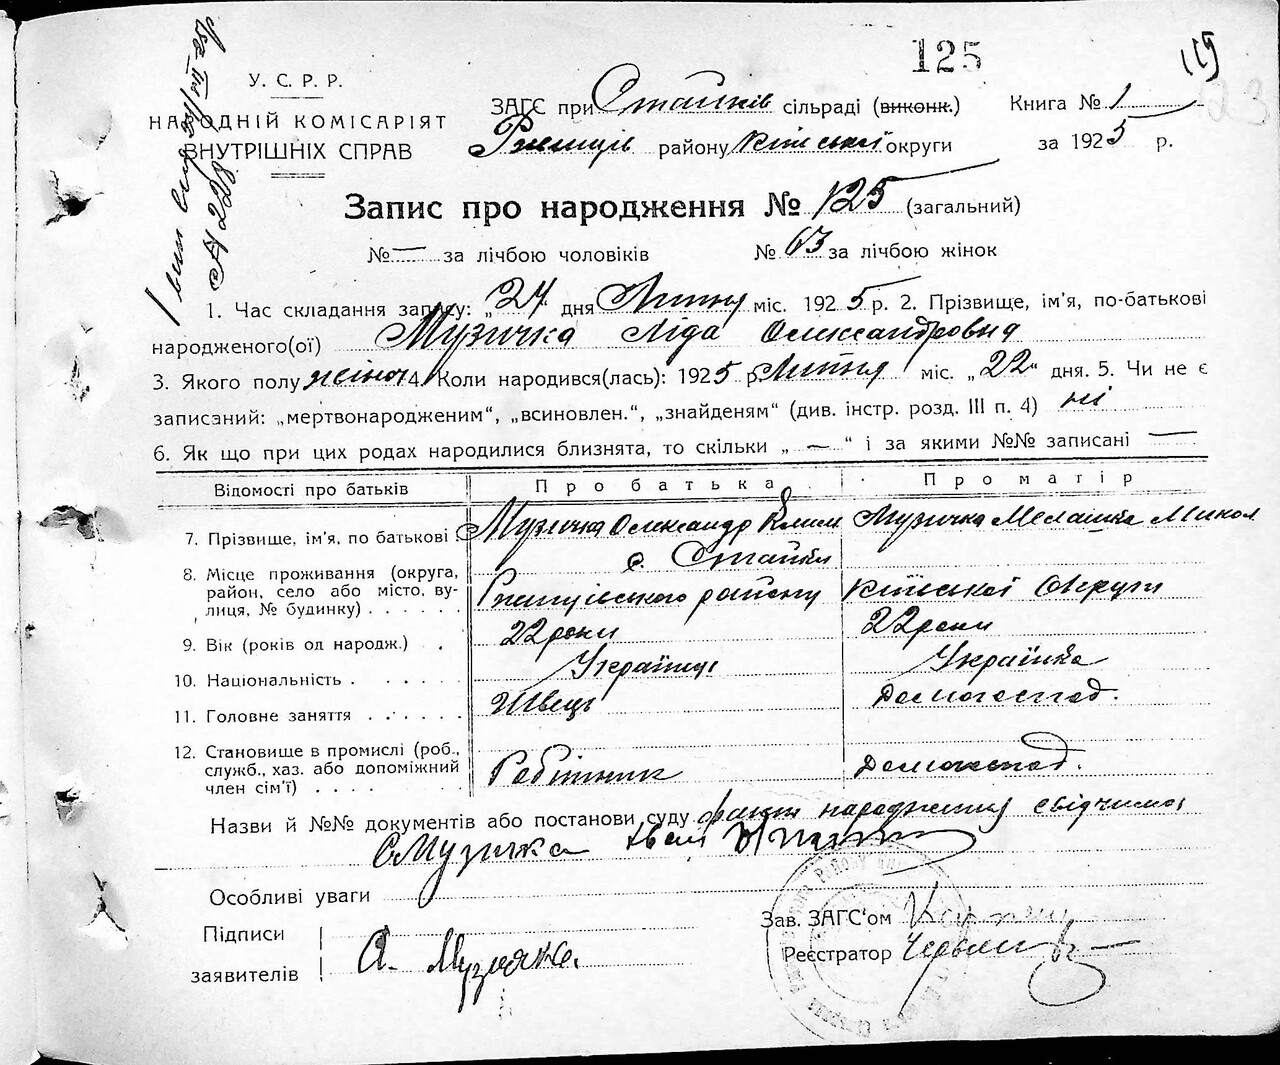 125
115
23
У. С. Р. Р.
НАРОДНІЙ КОМІСАРІЯТ
ВНУТРІШНІХ СПРАВ
ЗАГС при Стайків сільраді (виконк.) Книга № 1
Ржищів району Київської округи за 1925 р.
Запис про народження № 125 (загальний)
№ — за лічбою чоловіків № 63 за лічбою жінок
1. Час складання запису: „24“ дня Липня міс. 1925 р. 2. Прізвище, ім'я, по-батькові
народженого(ої) Музичка Ліда Олександровна
3. Якого полу жіноч 4. Коли народився(лась): 1925 р. Липня міс. „22“ дня. 5. Чи не є
записаний: „мертвонародженим“, „всиновлен.“, „знайденям“ (див. інстр. розд. III п. 4) ні
6. Як що при цих родах народилися близнята, то скільки „—“ і за якими №№ записані —
Відомості про батьків Про батька Про матір
7. Прізвище, ім'я, по батькові Музичка Олександр Клим Музичка Мелашка Микол
с. Стайки
8. Місце проживання (округа,
район, село або місто, ву-
лиця, № будинку) Ржищівського району Київської Округи
9. Вік (років од народж.) 22 роки 22 роки
10. Національність Українець Українка
11. Головне заняття Швець Домогоспод.
12. Становище в промислі (роб.,
служб., хаз. або допоміжний
член сім'ї) Робітник Домогоспод.
Назви й №№ документів або постанови суду факт народження свідчимо
Музичка Іван
Особливі уваги
Підписи
заявителів А. Музичка
Зав. ЗАГС'ом
Реєстратор